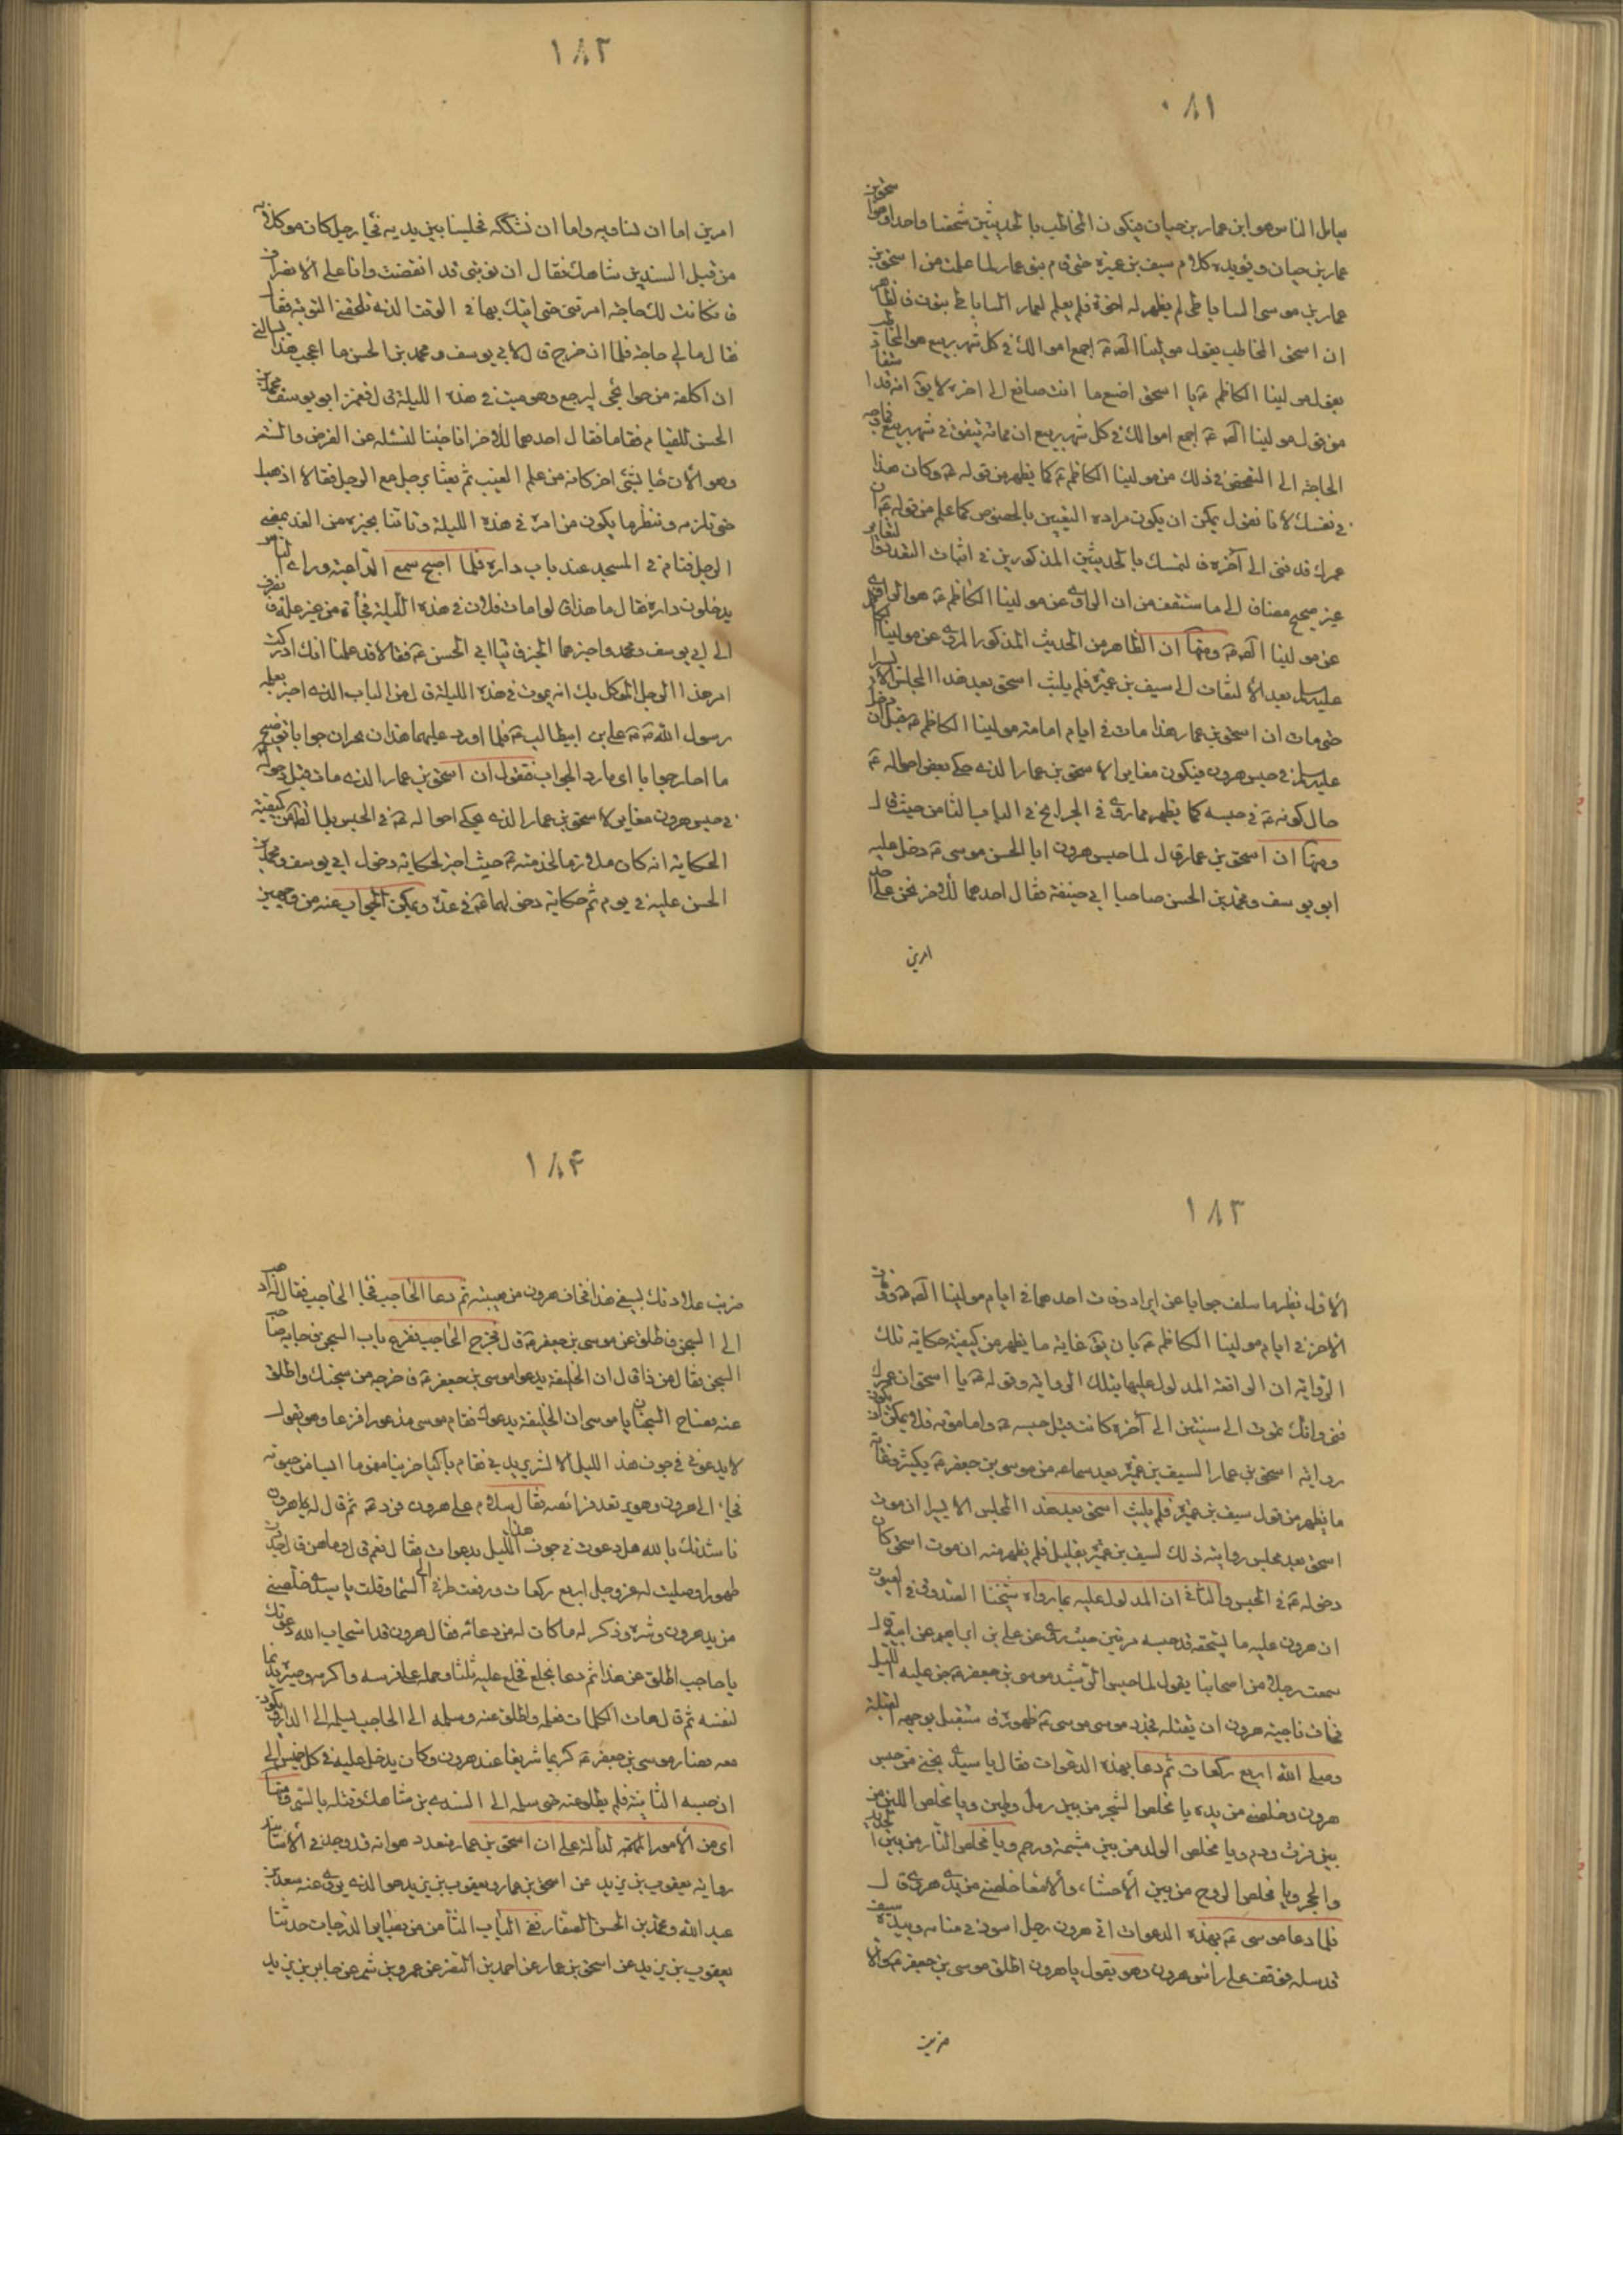 ١٨١
يعامل الناس هو ابن عمار بن حيان فيكون المخاطب بالحديثين شخصا واحدا وهو اسحق بن
عمار بن حيان ويؤيده كلام سيف بن عميرة حتى قام بنو عمار لما علمت من ان اسحق بن
عمار بن موسى الساباطى لم يظهر له اخوة فلم يعلم لعمار الساباطى بنون فالظاهر
ان اسحق المخاطب بقول مولينا الص ع اجمع اموالك فى كل شهر ربيع هو المخاطب
بقول مولينا الكاظم ع يا اسحق اصنع ما انت صانع الى اخره لا يق انه قد استفاد
من قول مولينا الص ع اجمع اموالك فى كل شهر ربيع ان مماته يتفق فى شهر ربيع فما وجه
الحاجة الى التحقق فى ذلك من مولينا الكاظم ع كما يظهر من قوله ع وكان هذا
فى نفسك لانا نقول يمكن ان يكون مراده التعيين بالخصوص كما علم من قوله ع ان
عمرك قد فنى الى آخره فالتمسك بالحديثين المذكورين فى اثبات التعدد والتغاير
غير صحيح مضافا الى ما ستقف من ان الراوى عن مولينا الكاظم ع هو الراوى
عن مولينا الص ع ومنها ان الظاهر من الحديث المذكور المروى عن مولينا الكاظم
عليه السلام بعد الالتفات الى سيف بن عميرة فلم يلبث اسحق بعد هذا المجلس الا يسيرا
حتى مات ان اسحق بن عمار هذا مات فى ايام امامة مولينا الكاظم ع قبل ان دخل
عليه السلام فى حبس هرون فيكون مغايرا لاسحق بن عمار الذى حكى بعض احواله ع
حال كونه ع فى حبسه كما يظهر مما روى فى الخرايج فى الباب الثامن حيث قال
ومنها ان اسحق بن عمار قال لما حبس هرون ابا الحسن موسى ع دخل عليه
ابو يوسف ومحمد بن الحسن صاحبا ابى حنيفة فقال احدهما للاخر نحن على احد
امرين
١٨٢
امرين اما ان نساويه واما ان نشككه فجلسا بين يديه فجاء رجل كان موكلا به
من قبل السندى بن شاهك فقال ان نوبتى قد انقضت وانا على الانصراف
فان كانت لك حاجة امرتنى حتى اتيك بها فى الوقت الذى تلحقنى النوبة فقال
فقال مالى حاجة فلما ان خرج قال لابى يوسف ومحمد بن الحسن ما اعجب هذا يسألنى
ان اكلفه من حوائجى ليرجع وهو ميت فى هذه الليلة قال فغمز ابو يوسف محمد بن
الحسن للقيام فقاما فقال احدهما للاخر انا جئنا لنسئله عن الفرض والسنة
وهو الان جاء بشئ اخر كانه من علم الغيب ثم بعثا برجل مع الرجل فقالا اذهب
حتى تلزمه وتنظر ما يكون من امره فى هذه الليلة وتاتنا بخبره من الغد فمضى
الرجل فنام فى المسجد عند باب داره فلما اصبح سمع الداعية وراى الناس
يدخلون داره فقال ما هذا قالوا مات فلان فى هذه الليلة فجأة من غير علة فانصرف
الى ابى يوسف ومحمد واخبرهما الخبر فاتيا ابى الحسن ع فقالا قد علمنا انك ادركت
امر هذا الرجل الموكل بك انه يموت فى هذه الليلة قال من الباب الذى اخبر بعلمه
رسول الله ص على بن ابيطالب ع فلما اورد عليهما هذان بحران جوابا توضيح
ما احار جوابا اى ما رد الجواب فنقول ان اسحق بن عمار الذى مات قبل دخوله
فى حبس هرون مغاير لاسحق بن عمار الذى يحكى احواله ع فى الحبس بل الظاهر من كيفية
الحكاية انه كان ملازما لخدمته ع حيث اخبر لحكاية دخول ابى يوسف ومحمد بن
الحسن عليه فى يوم ثم حكاية دخولهما ع فى غده ويمكن الجواب عنه من وجهين
١٨٣
الاول نظير ما سلف جوابا عن ايراد وفات احدهما فى ايام مولينا الص ع وفوت
الاخر فى ايام مولينا الكاظم ع بان يق غاية ما يظهر من كيفية حكاية تلك
الرواية ان الواقعة المدلول عليها بتلك الرواية وقوله ع يا اسحق ان عمرك
فنى وانك تموت الى سنتين الى آخره كانت قبل حبسه ع واما موته فلا ويمكن ان يكون
رواية اسحق بن عمار السيف بن عميرة بعد سماعه من موسى بن جعفر ع بكثير وغاية
ما يظهر من قول سيف بن عميرة فلم يلبث اسحق بعد هذا المجلس الا يسيرا ان موت
اسحق بعد مجلس روايته ذلك لسيف بن عميرة بقليل فلم يظهر منه ان موت اسحق كان
دخوله ع فى الحبس والثانى ان المدلول عليه بما رواه شيخنا الصدوق فى العيون
ان هرون عليه ما يستحقه قد حبسه مرتين حيث روى عن على بن ابراهيم عن ابيه قال
سمعت رجلا من اصحابنا يقول لما حبس الرشيد موسى بن جعفر ع جن عليه الليل
فخاف ناحية هرون ان يقتله فجدد موسى موسى ع طهوره فاستقبل بوجهه القبلة
وصلى الله اربع ركعات ثم دعا بهذه الدعوات فقال يا سيدى نجنى من حبس
هرون وخلصنى من يده يا مخلص الشجر من بين رمل وطين ويا مخلص اللبن من
بين فرث ودم ويا مخلص الولد من بين مشيمة ورحم ويا مخلص النار من بين الحديد
والحجر ويا مخلص الروح من بين الاحشاء والامعا خلصنى من يدى هرون قال
فلما دعا موسى ع بهذه الدعوات اتى هرون رجل اسود فى منامه وبيده سيف
قد سله فوقف على راس هرون وهو يقول يا هرون اطلق موسى بن جعفر ع والا
ضربت
١٨٤
ضربت علاوتك بسيفى هذا فخاف هرون من هيبته ثم دعا الحاجب فجاء الحاجب فقال له اذهب
الى السجن فاطلق عن موسى بن جعفر ع قال فخرج الحاجب فقرع باب السجن فاجابه صاحب
السجن فقال من ذا قال ان الخليفة يدعو موسى بن جعفر ع فاخرجه من سجنك واطلق
عنه فصاح السجان يا موسى ان الخليفة يدعوك فقام موسى مذعورا فزعا وهو يقول
لا يدعونى فى جوف هذا الليل الا لشر يريد بى فقام باكيا حزينا مغموما ايسا من حيوته
فجاء الى هرون وهو يرتعد فرائصه فقال سلام على هرون فرد ع ثم قال له هرون
ناشدتك بالله هل دعوت فى جوف هذا الليل بدعوات فقال نعم قال وما هن قال جددت
طهورا وصليت لله عز وجل اربع ركعات ورفعت طرفى الى السما وقلت يا سيدى خلصنى
من يد هرون وشره وذكر له ما كان له من دعائه فقال هرون قد استجاب الله دعوتك
يا حاجب اطلق عن هذا ثم دعا بخلع فخلع عليه ثلثا وحمله على فرسه واكرمه وصيره نديما
لنفسه ثم قال هات الكلمات فعلمه واطلق عنه وسلمه الى الحاجب ليسلمه الى الدار ويكون
معه فصار موسى بن جعفر ع كريما شريفا عند هرون وكان يدخل عليه فى كل خميس الى
ان حبسه الثانية فلم يطلق عنه حتى سلمه الى السندى بن شاهك وقتله بالسم ومنها
اى من الامور الدالة على ان اسحق بن عمار متعدد هو انه قد وجد فى الاسانيد
رواية يعقوب بن يزيد عن اسحق بن عمار ويعقوب بن يزيد هو الذى يروى عنه سعد بن
عبد الله ومحمد بن الحسن الصفار ففى الباب الثامن من بصائر الدرجات حدثنا
يعقوب بن يزيد عن اسحق بن عمار عن احمد بن النضر عن عمرو بن شمر عن جابر بن يزيد